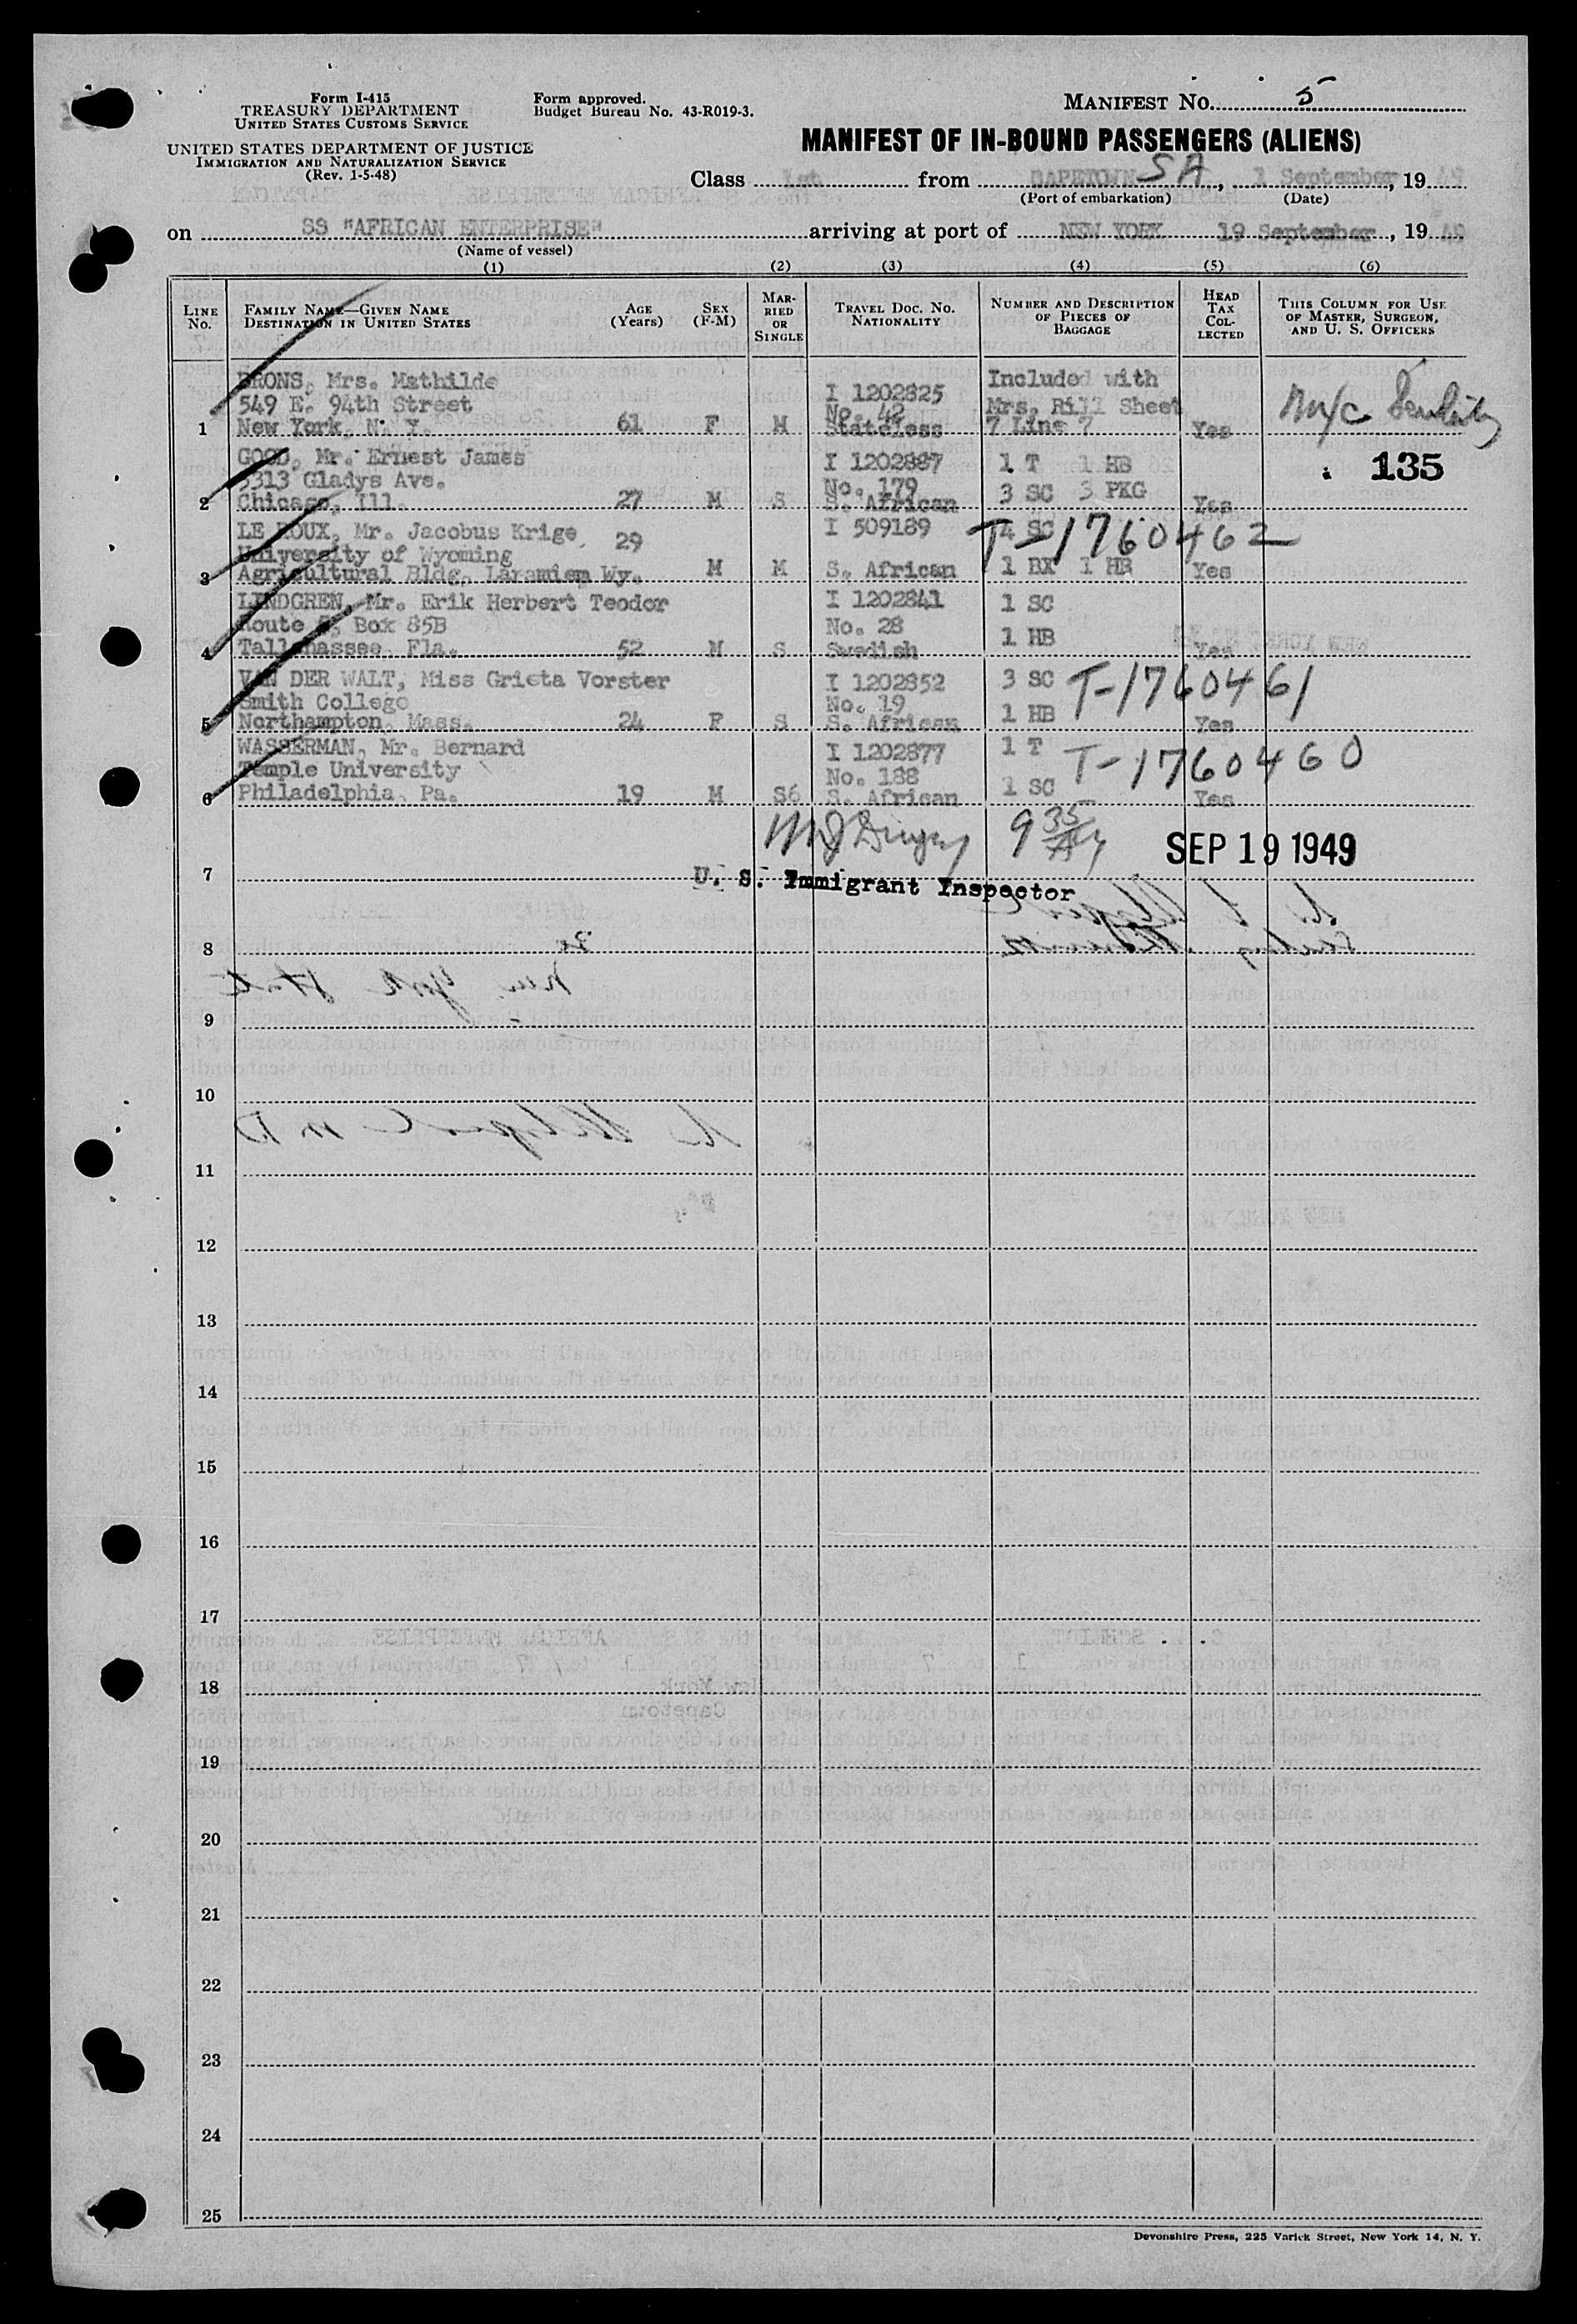 Form I-415
TREASURY DEPARTMENT
UNITED STATES CUSTOMS SERVICE
UNITED STATES DEPARTMENT OF JUSTICE
IMMIGRATION AND NATURALIZATION SERVICE
(Rev. 1-5-48)
Form approved.
Budget Bureau No. 43-R019-3.
MANIFEST NO. 5
MANIFEST OF IN-BOUND PASSENGERS (ALIENS)
Class 1st from CAPETOWN SA, 1 September, 19 49
(Port of embarkation) (Date)
on SS "AFRICAN ENTERPRISE" arriving at port of NEW YORK 19 September, 19 49
(Name of vessel)
(1) (2) (3) (4) (5) (6)
LINE No. FAMILY NAME—GIVEN NAME DESTINATION IN UNITED STATES AGE (Years) SEX (F-M) MARRIED OR SINGLE TRAVEL DOC. NO. NATIONALITY NUMBER AND DESCRIPTION OF PIECES OF BAGGAGE HEAD TAX COLLECTED THIS COLUMN FOR USE OF MASTER, SURGEON, AND U. S. OFFICERS
BRONS, Mrs. Mathilde I 1202825 Included with
549 E. 94th Street No. 42 Mrs. Rill Sheet
1 New York, N. Y. 61 F M Stateless 7 Line 7 Yes
GOOD, Mr. Ernest James I 1202887 1 T 1 HB 135
5313 Gladys Ave. No. 179 3 SC 3 PKG
2 Chicago, Ill. 27 M S S. African Yes
LE ROUX, Mr. Jacobus Krige 29 I 509189 4 SC T-1760462
University of Wyoming
3 Agricultural Bldg. Laramiem Wy. M M S. African 1 BX 1 HB Yes
LINDGREN, Mr. Erik Herbert Teodor I 1202841 1 SC
Route Box 85B No. 28 1 HB
4 Tallahassee, Fla. 52 M S Swedish Yes
VAN DER WALT, Miss Grieta Vorster I 1202852 3 SC T-1760461
Smith College No. 19 1 HB
5 Northampton, Mass. 24 F S S. African Yes
WASSERMAN, Mr. Bernard I 1202877 1 T T-1760460
Temple University No. 188 1 SC
6 Philadelphia, Pa. 19 M S6 S. African Yes
9 35 SEP 19 1949
7 U. S. Immigrant Inspector
8
9
10
11
12
13
14
15
16
17
18
19
20
21
22
23
24
25
Devonshire Press, 225 Varick Street, New York 14, N. Y.